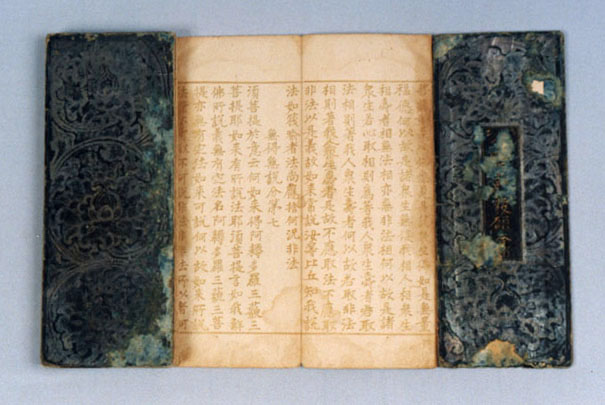 如是無量
福德何以故是諸眾生無復我相人相眾生
相壽者相無法相亦無非法相何以故是諸
眾生若心取相則為著我人眾生壽者若取
法相則著我人眾生壽者何以故若取非法
相則著我人眾生壽者是故不應取法不應取
非法以是義故如來常說汝等比丘知我說
法如筏喻者法尚應捨何況非法
無得無說分第七
須菩提於意云何如來得阿耨多羅三藐三
菩提耶如來有所說法耶須菩提言如我解
佛所說義無有定法名阿耨多羅三藐三菩
提亦無有定法如來可說何以故如來所說
不可取不可說所以者何